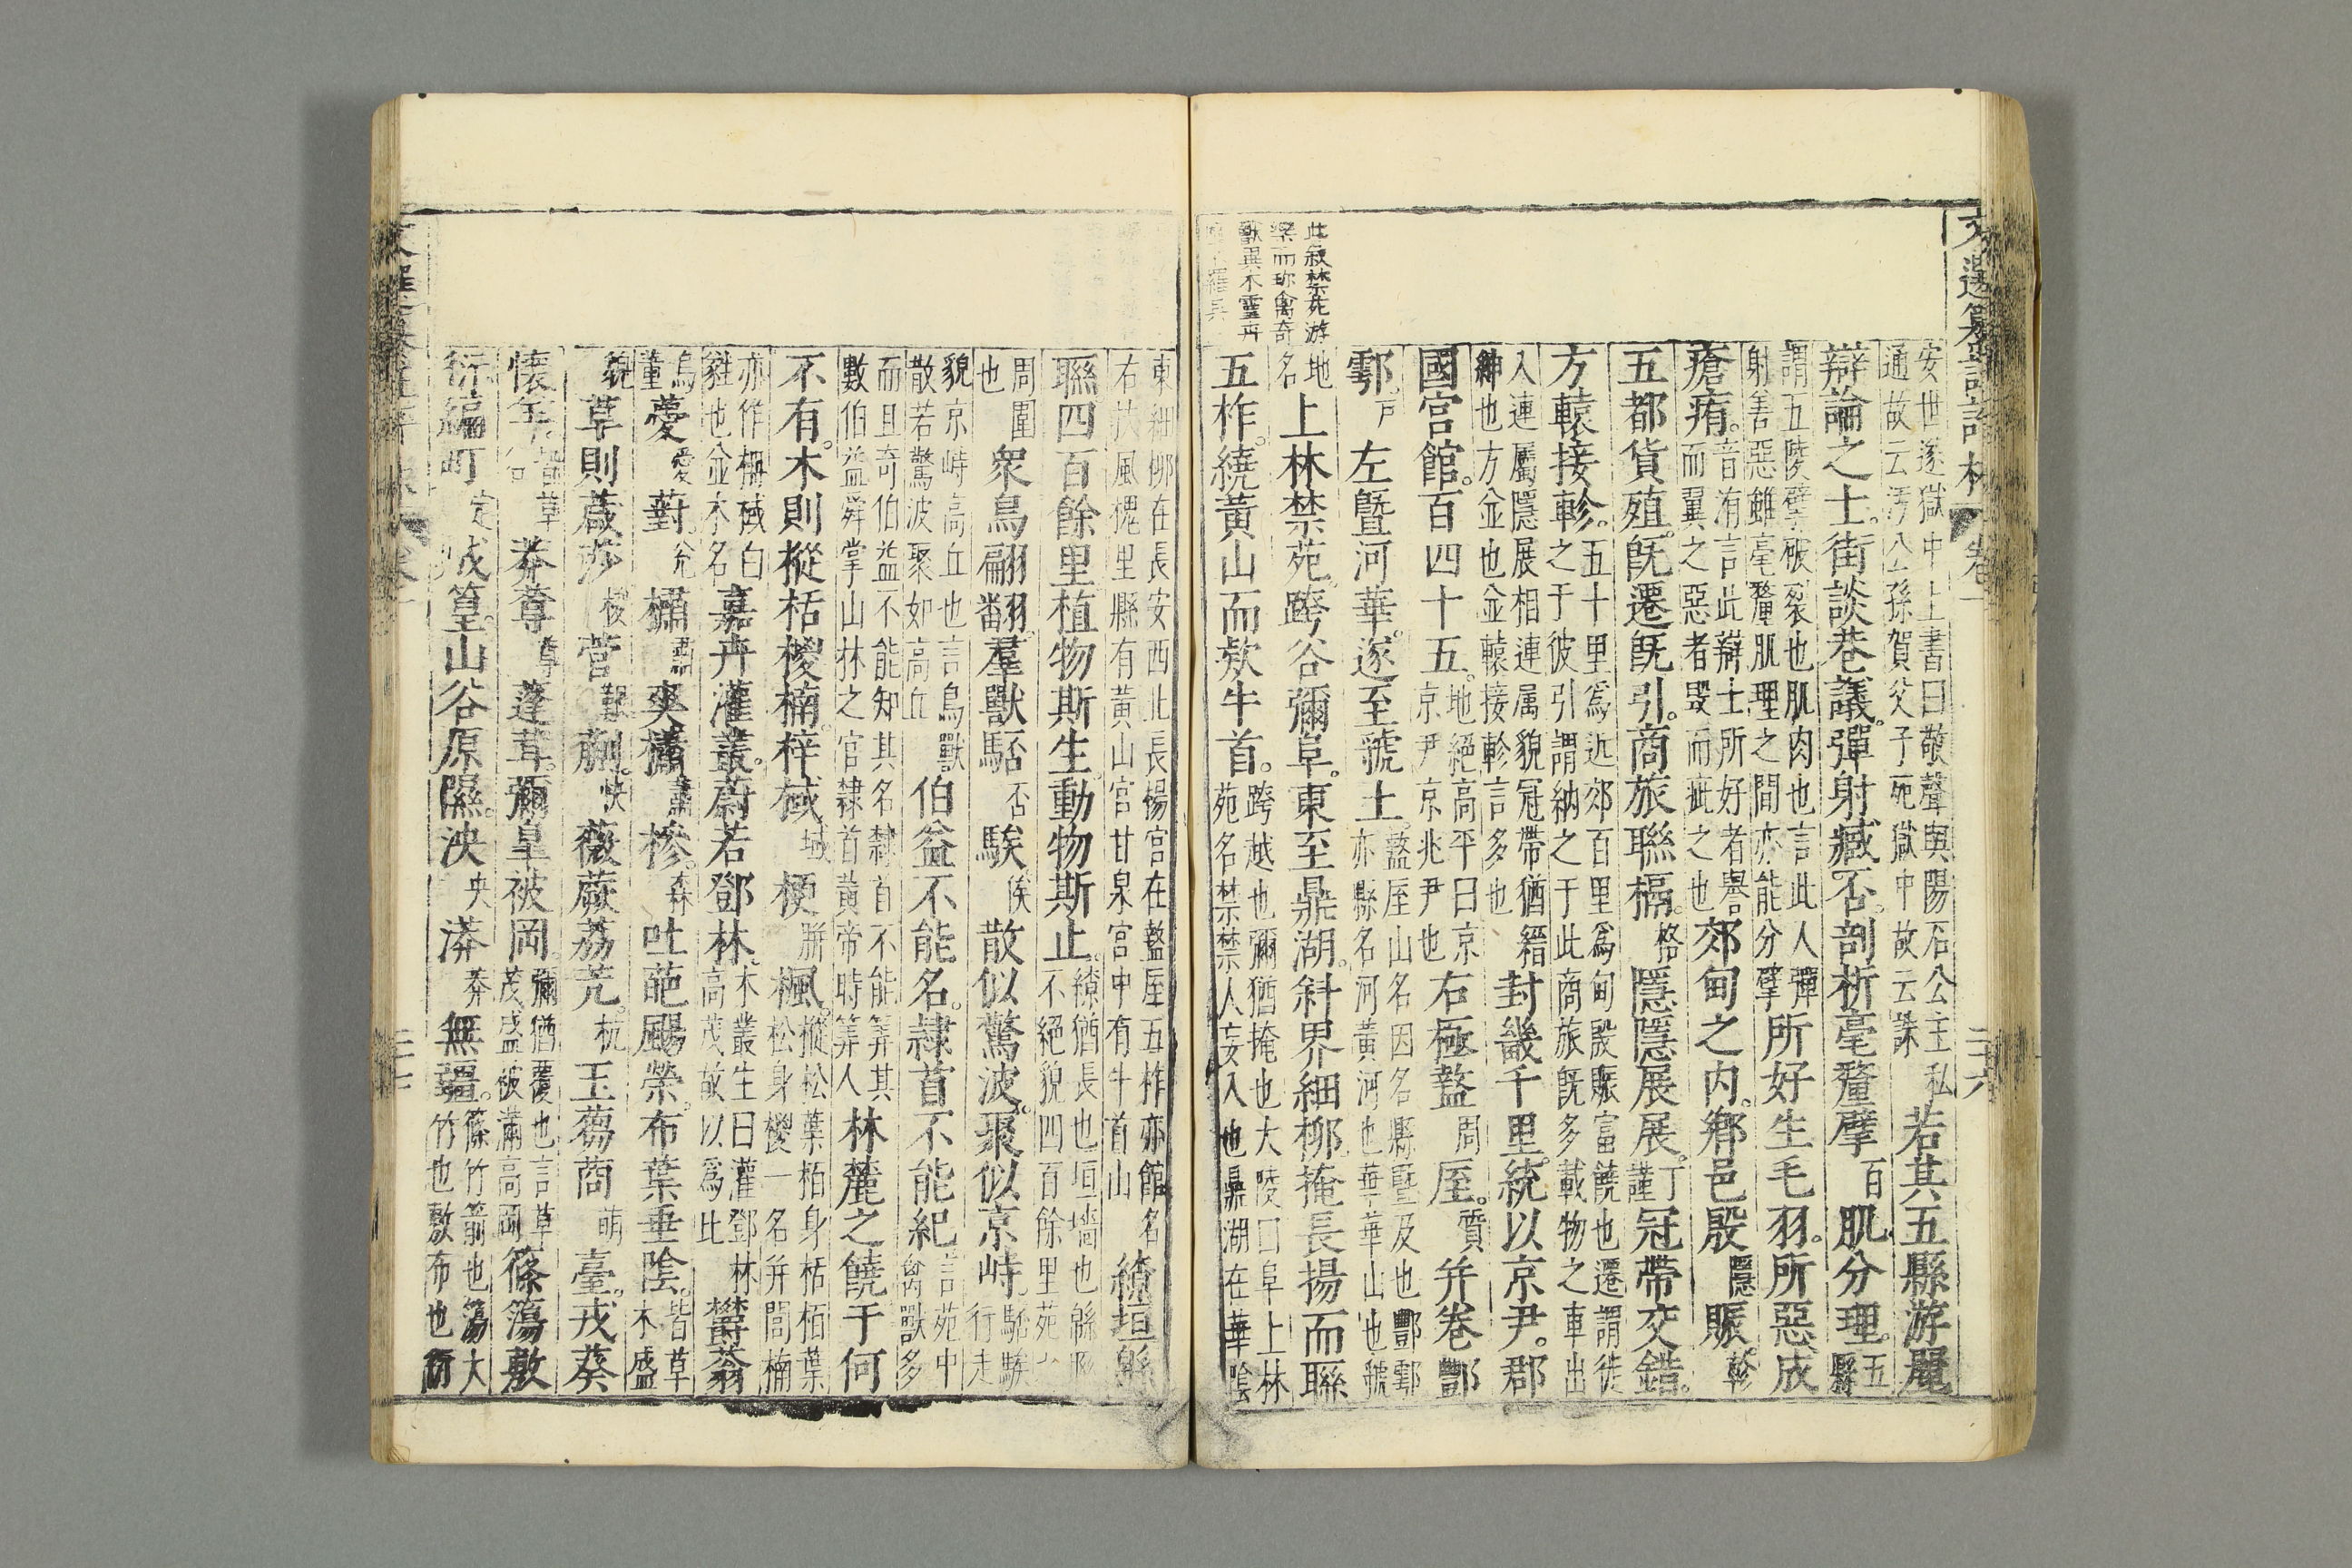 文選纂註評林 卷一 二十六
此叙禁苑游
樂而珍禽奇
獸異木靈卉
安世遂獄中上書曰敬聲與陽石公主私
通故云汚公孫賀父子死獄中故云誅
若其五縣游麗
辯論之士。街談巷議。彈射臧否。剖析毫釐擘百肌分理。五縣
謂五陵擘破裂也肌肉也言此人彈
射善惡雖毫釐肌理之間亦能分擘
所好生毛羽。所惡成
瘡痏。音洧言此辯士所好者譽
而翼之惡者毀而疵之也
郊甸之内。鄉邑殷隱賑。軫
五都貨殖。旣遷旣引。商旅聯槅。格隱隱展展。丁謹冠帶交錯。
方轅接軫。五十里爲近郊百里爲甸殷賑富饒也遷謂徙
之于彼引謂納之于此商旅旣多載物之車出
入連屬隱展相連属貌冠帶猶縉
紳也方並也並轅接軫言多也
封畿千里。統以京尹。郡
國宮館。百四十五。地絕高平曰京
京尹京兆尹也
右極盩周厔。質并卷酆
鄠。戸左暨河華。遂至虢土。盩厔山名因名縣暨及也酆鄠
亦縣名河黃河也華華山也虢
地
名
上林禁苑。跨谷彌阜。東至鼎湖。斜界細柳。掩長揚而聯
五柞。繞黃山而欵牛首。跨越也彌猶掩也大陵曰阜上林
苑名禁禁人妄入也鼎湖在華陰
東細柳在長安西北長楊宮在盩厔五柞亦館名
右扶風槐里縣有黃山宮甘泉宮中有牛首山
繚垣緜
聯四百餘里植物斯生。動物斯止。繚猶長也垣墻也緜聮
不絕貌四百餘里苑之
周圍
也
衆鳥翩翻。羣獸駓否騃俟散似驚波。聚似京峙。駓騃行走
貌京峙高丘也言鳥獸
散若驚波聚如高丘
伯益不能名。隸首不能紀言苑中
禽獸多
而且奇伯益不能知其名隸首不能筭其
數伯益舜掌山林之官隸首黃帝時筭人
林麓之饒于何
不有。木則樅栝椶楠。梓棫域楩駢楓。樅松葉柏身栝柏葉
松身椶一名并閭楠
亦作枏棫白
蕤也並木名
嘉卉灌叢。蔚若鄧林。木叢生曰灌鄧林
高茂故以爲比
鬱蓊
薆愛薱。兊橚肅爽櫹蕭槮。森吐葩颺榮。布葉垂陰。皆草
木盛
貌
草則葴莎椶菅蒯。快薇蕨荔芫。杭王蒭莔萌臺。戎葵
懷羊。莽蓴蓬茸。彌皇被岡。彌猶覆也言草
茂盛被滿高岡
篠簜敷
衍編町成篁。山谷原隰。泱央漭莽無疆。篠竹箭也簜大
竹也敷布也衍
二十七